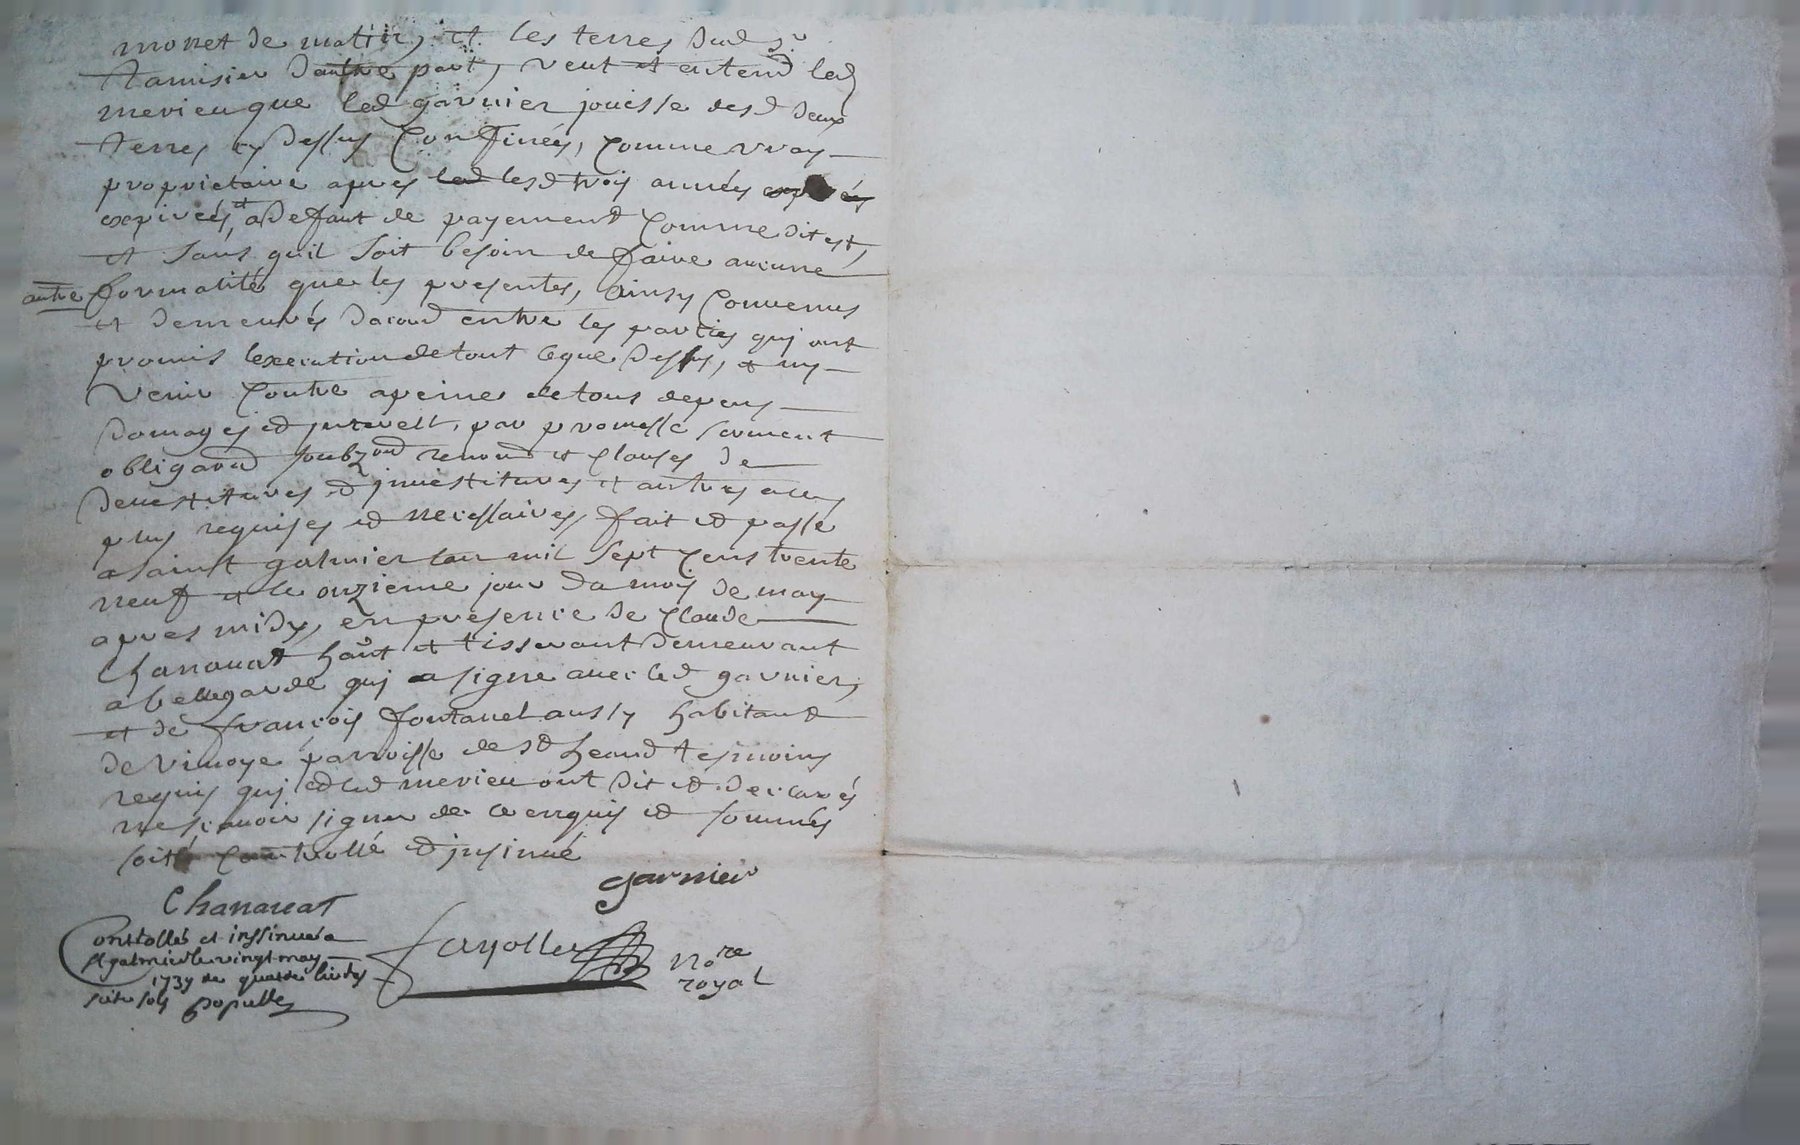 monet de matin, et les terres dud sr
tamisier dautre part, veut et entend led
merieu que led garnier jouisse desd deux
terres cy dessus Confinées, comme vray
proprietaire apres led lesd trois années
expirées, et a deffaut de payement comme dit est,
et sans quil soit besoin de faire aucune
autre formalité que les presentes, ainsy Convenus
et demeurés dacord entre les parties qui ont
promis lexecution de tout ce que dessus, et ny
venir contre a peines de tous depens
domages et interest, par promesse serment
obligaond soubzond renond et clauses de
devestitures et jnvestitures et autres a ces
plus requises et necessaires, fait et passé
a saint galmier lan mil sept cens trente
neuf et le onzieme jour du mois de may
apres midy, en presence de Claude
Chanauat haut et tisserant demeurant
a bellegarde qui a signe avec led garnier,
et de françois fontanel aussy habitant
de vinoye parroisse de st heand tesmoins
requis qui et led merieu ont dit et declarés
ne scavoir signer de ce enquis et sommés
soit controllé et jnsinué
garnier
Chanauat
fayolle
Nore
royal
Conttollés et inssinué a
st galmier le vingt may
1739 de quatre livres
sols